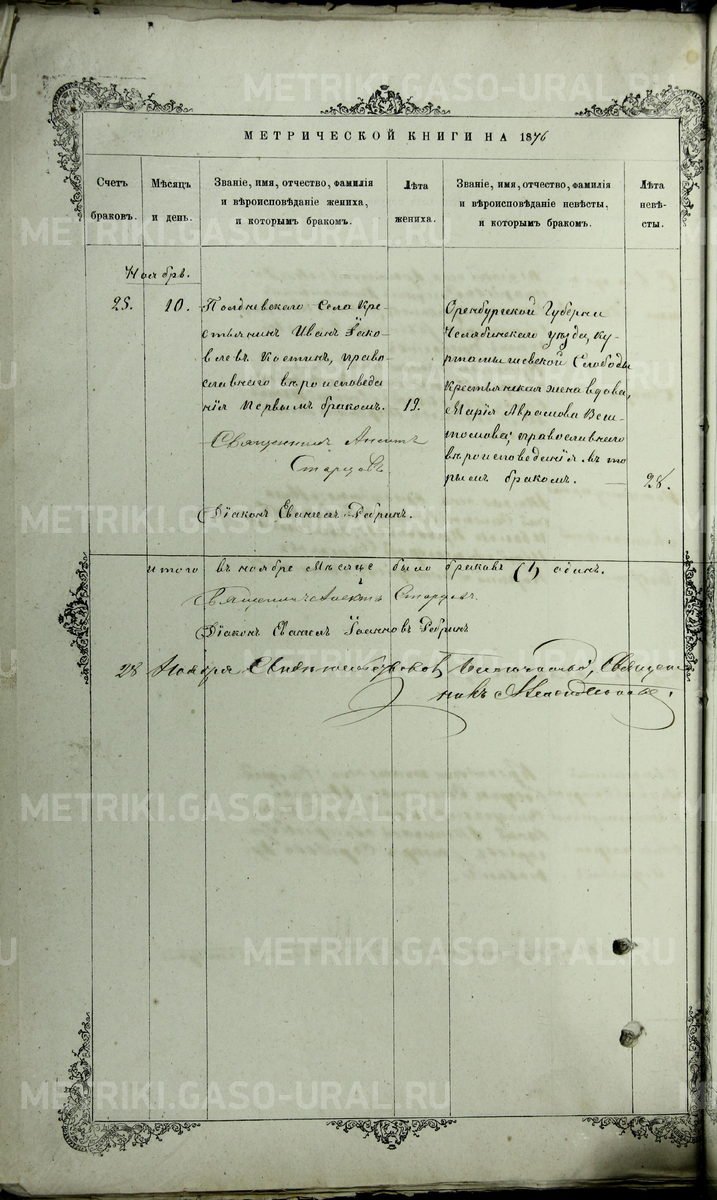 МЕТРИЧЕСКОЙ КНИГИ НА 1876
Счетъ браковъ.
Мѣсяцъ и день.
Званіе, имя, отчество, фамилія
и вѣроисповѣданіе жениха,
и которымъ бракомъ.
Лѣта жениха.
Званіе, имя, отчество, фамилія
и вѣроисповѣданіе невѣсты,
и которымъ бракомъ.
Лѣта невѣ-
сты.
Ноябрь.
25. 10.
Полдневскаго Села Кре-
стьянинъ Иванъ Яко-
влевъ Костинъ, право-
славнаго вѣроисповѣда
нія первымъ бракомъ. 19.
Священникъ
Старцевъ
Діаконъ Евангелъ Рябинъ.
Оренбургской Губерніи
Челябинскаго уѣзда, Ку-
ртамышевской Слободы
Крестьянская жена вдова,
Марія Аврамова
православнаго
вѣроисповѣданія вто
рымъ бракомъ. 28.
итого въ ноябрѣ мѣсяцѣ было браковъ (1) одинъ.
Священникъ Старцевъ.
Діаконъ Евангелъ Іоанновъ Рябинъ
28 Ноября Священ
никъ
METRIKI.GASO-URAL.RU